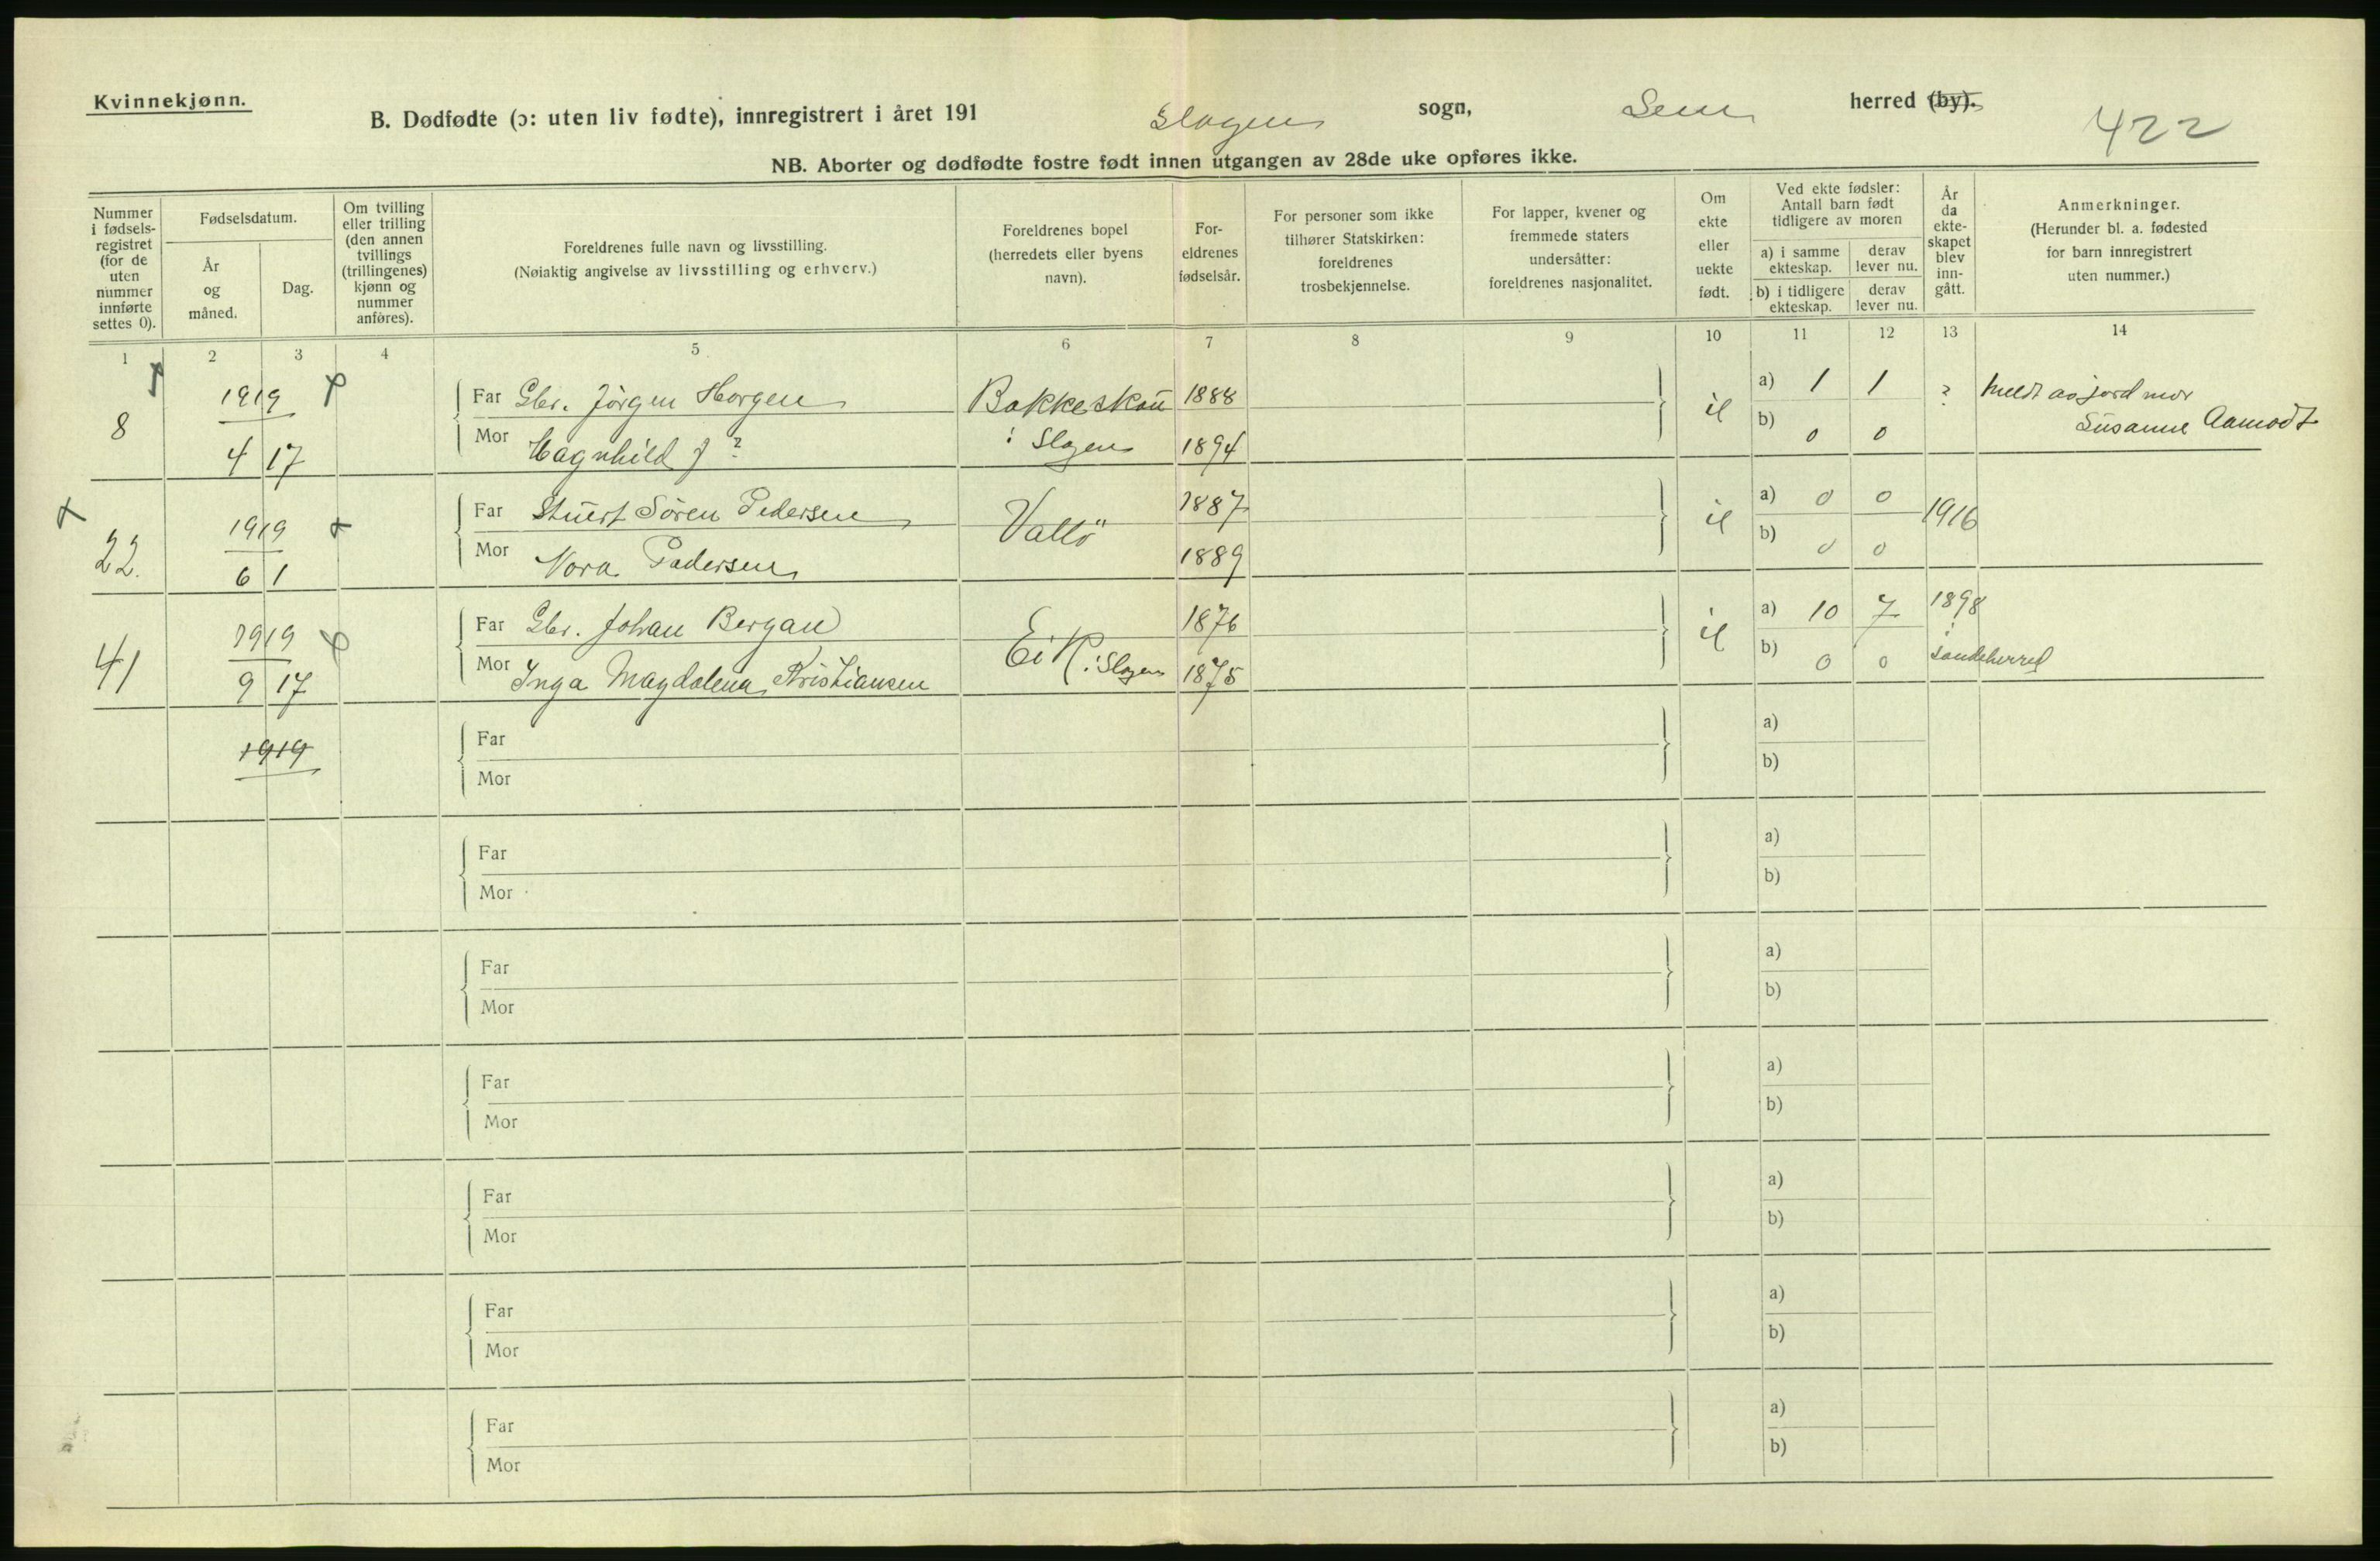 Kvinnekjønn.
B. Dødfødte (ɔ: uten liv fødte), innregistrert i året 191 Slagen sogn, Sem herred (by).
422
NB. Aborter og dødfødte fostre født innen utgangen av 28de uke opføres ikke.
Nummer i fødsels-registret (for de uten nummer innførte settes 0).
Fødselsdatum.
År og måned.
Dag.
Om tvilling eller trilling (den annen tvillings (trillingenes) kjønn og nummer anføres).
Foreldrenes fulle navn og livsstilling.
(Nøiaktig angivelse av livsstilling og erhverv.)
Foreldrenes bopel (herredets eller byens navn).
For-eldrenes fødselsår.
For personer som ikke tilhører Statskirken: foreldrenes trosbekjennelse.
For lapper, kvener og fremmede staters undersåtter: foreldrenes nasjonalitet.
Om ekte eller uekte født.
Ved ekte fødsler: Antall barn født tidligere av moren
a) i samme ekteskap. derav lever nu.
b) i tidligere ekteskap. derav lever nu.
År da ekte-skapet blev inn-gått.
Anmerkninger.
(Herunder bl. a. fødested for barn innregistrert uten nummer.)
1 2 3 4 5 6 7 8 9 10 11 12 13 14
8 1919 4 17
Far Gbr. Jörgen Horgen Bakkeskau 1888 a) 1 1 ? meldt av jordmor
Mor Hagnhild J ? i Slagen 1894 b) 0 0 Susanne Aamodt
22. 1919 6 1
Far Stuert Sören Pedersen Vallö 1887 a) 0 0 1916
Mor Nora Pedersen 1889 b) 0 0
41 1919 9 17
Far Gbr. Johan Bergan Eik i Slagen 1876 a) 10 7 1898
Mor Inga Magdalena Kristiansen 1875 b) 0 0 i Sandeherred
1919
Far a)
Mor b)
Far a)
Mor b)
Far a)
Mor b)
Far a)
Mor b)
Far a)
Mor b)
Far a)
Mor b)
Far a)
Mor b)